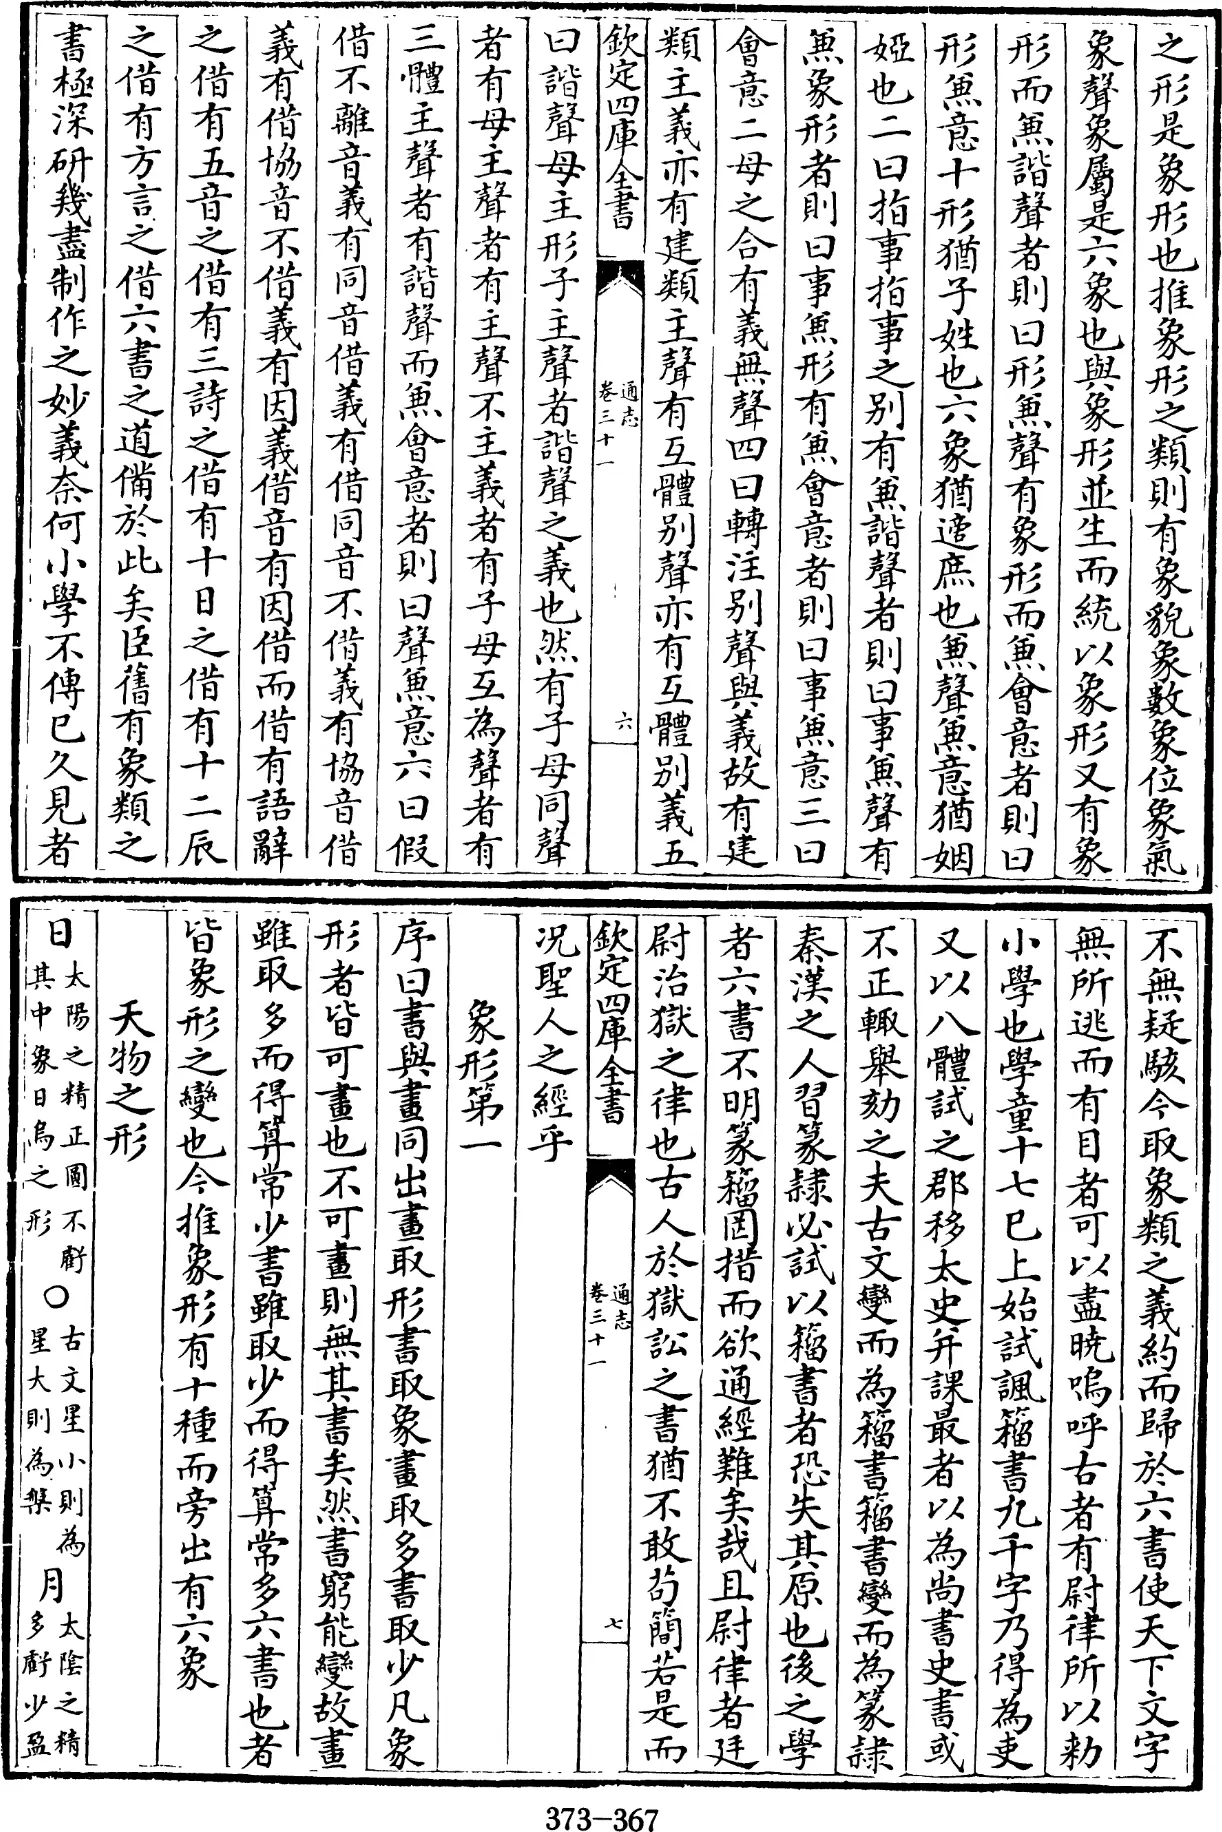 之形是象形也推象形之類則有象貌象數象位象氣
象聲象屬是六象也與象形並生而統以象形又有象
形而兼諧聲者則曰形兼聲有象形而兼會意者則曰
形兼意十形猶子姓也六象猶適庶也兼聲兼意猶姻
婭也二曰指事指事之别有兼諧聲者則曰事兼聲有
兼象形者則曰事兼形有兼會意者則曰事兼意三曰
會意二母之合有義無聲四曰轉注别聲與義故有建
類主義亦有建類主聲有互體别聲亦有互體别義五
欽定四庫全書
通志
卷三十一
六
曰諧聲母主形子主聲者諧聲之義也然有子母同聲
者有母主聲者有主聲不主義者有子母互為聲者有
三體主聲者有諧聲而兼會意者則曰聲兼意六曰假
借不離音義有同音借義有借同音不借義有協音借
義有借協音不借義有因義借音有因借而借有語辭
之借有五音之借有三詩之借有十日之借有十二辰
之借有方言之借六書之道備於此矣臣舊有象類之
書極深研幾盡制作之妙義奈何小學不傳已久見者
不無疑駭今取象類之義約而歸於六書使天下文字
無所逃而有目者可以盡曉嗚呼古者有尉律所以勑
小學也學童十七已上始試諷籀書九千字乃得為吏
又以八體試之郡移太史并課最者以為尚書史書或
不正輒舉劾之夫古文變而為籀書籀書變而為篆隸
秦漢之人習篆隸必試以籀書者恐失其原也後之學
者六書不明篆籀罔措而欲通經難矣哉且尉律者廷
尉治獄之律也古人於獄訟之書猶不敢茍簡若是而
欽定四庫全書
通志
卷三十一
七
况聖人之經乎
象形第一
序曰書與畫同出畫取形書取象畫取多書取少凡象
形者皆可畫也不可畫則無其書矣然書窮能變故畫
雖取多而得算常少書雖取少而得算常多六書也者
皆象形之變也今推象形有十種而旁出有六象
天物之形
日太陽之精正圓不虧其中象日烏之形〇古文星小則為星大則為㲋月太陰之精多虧少盈
373-367